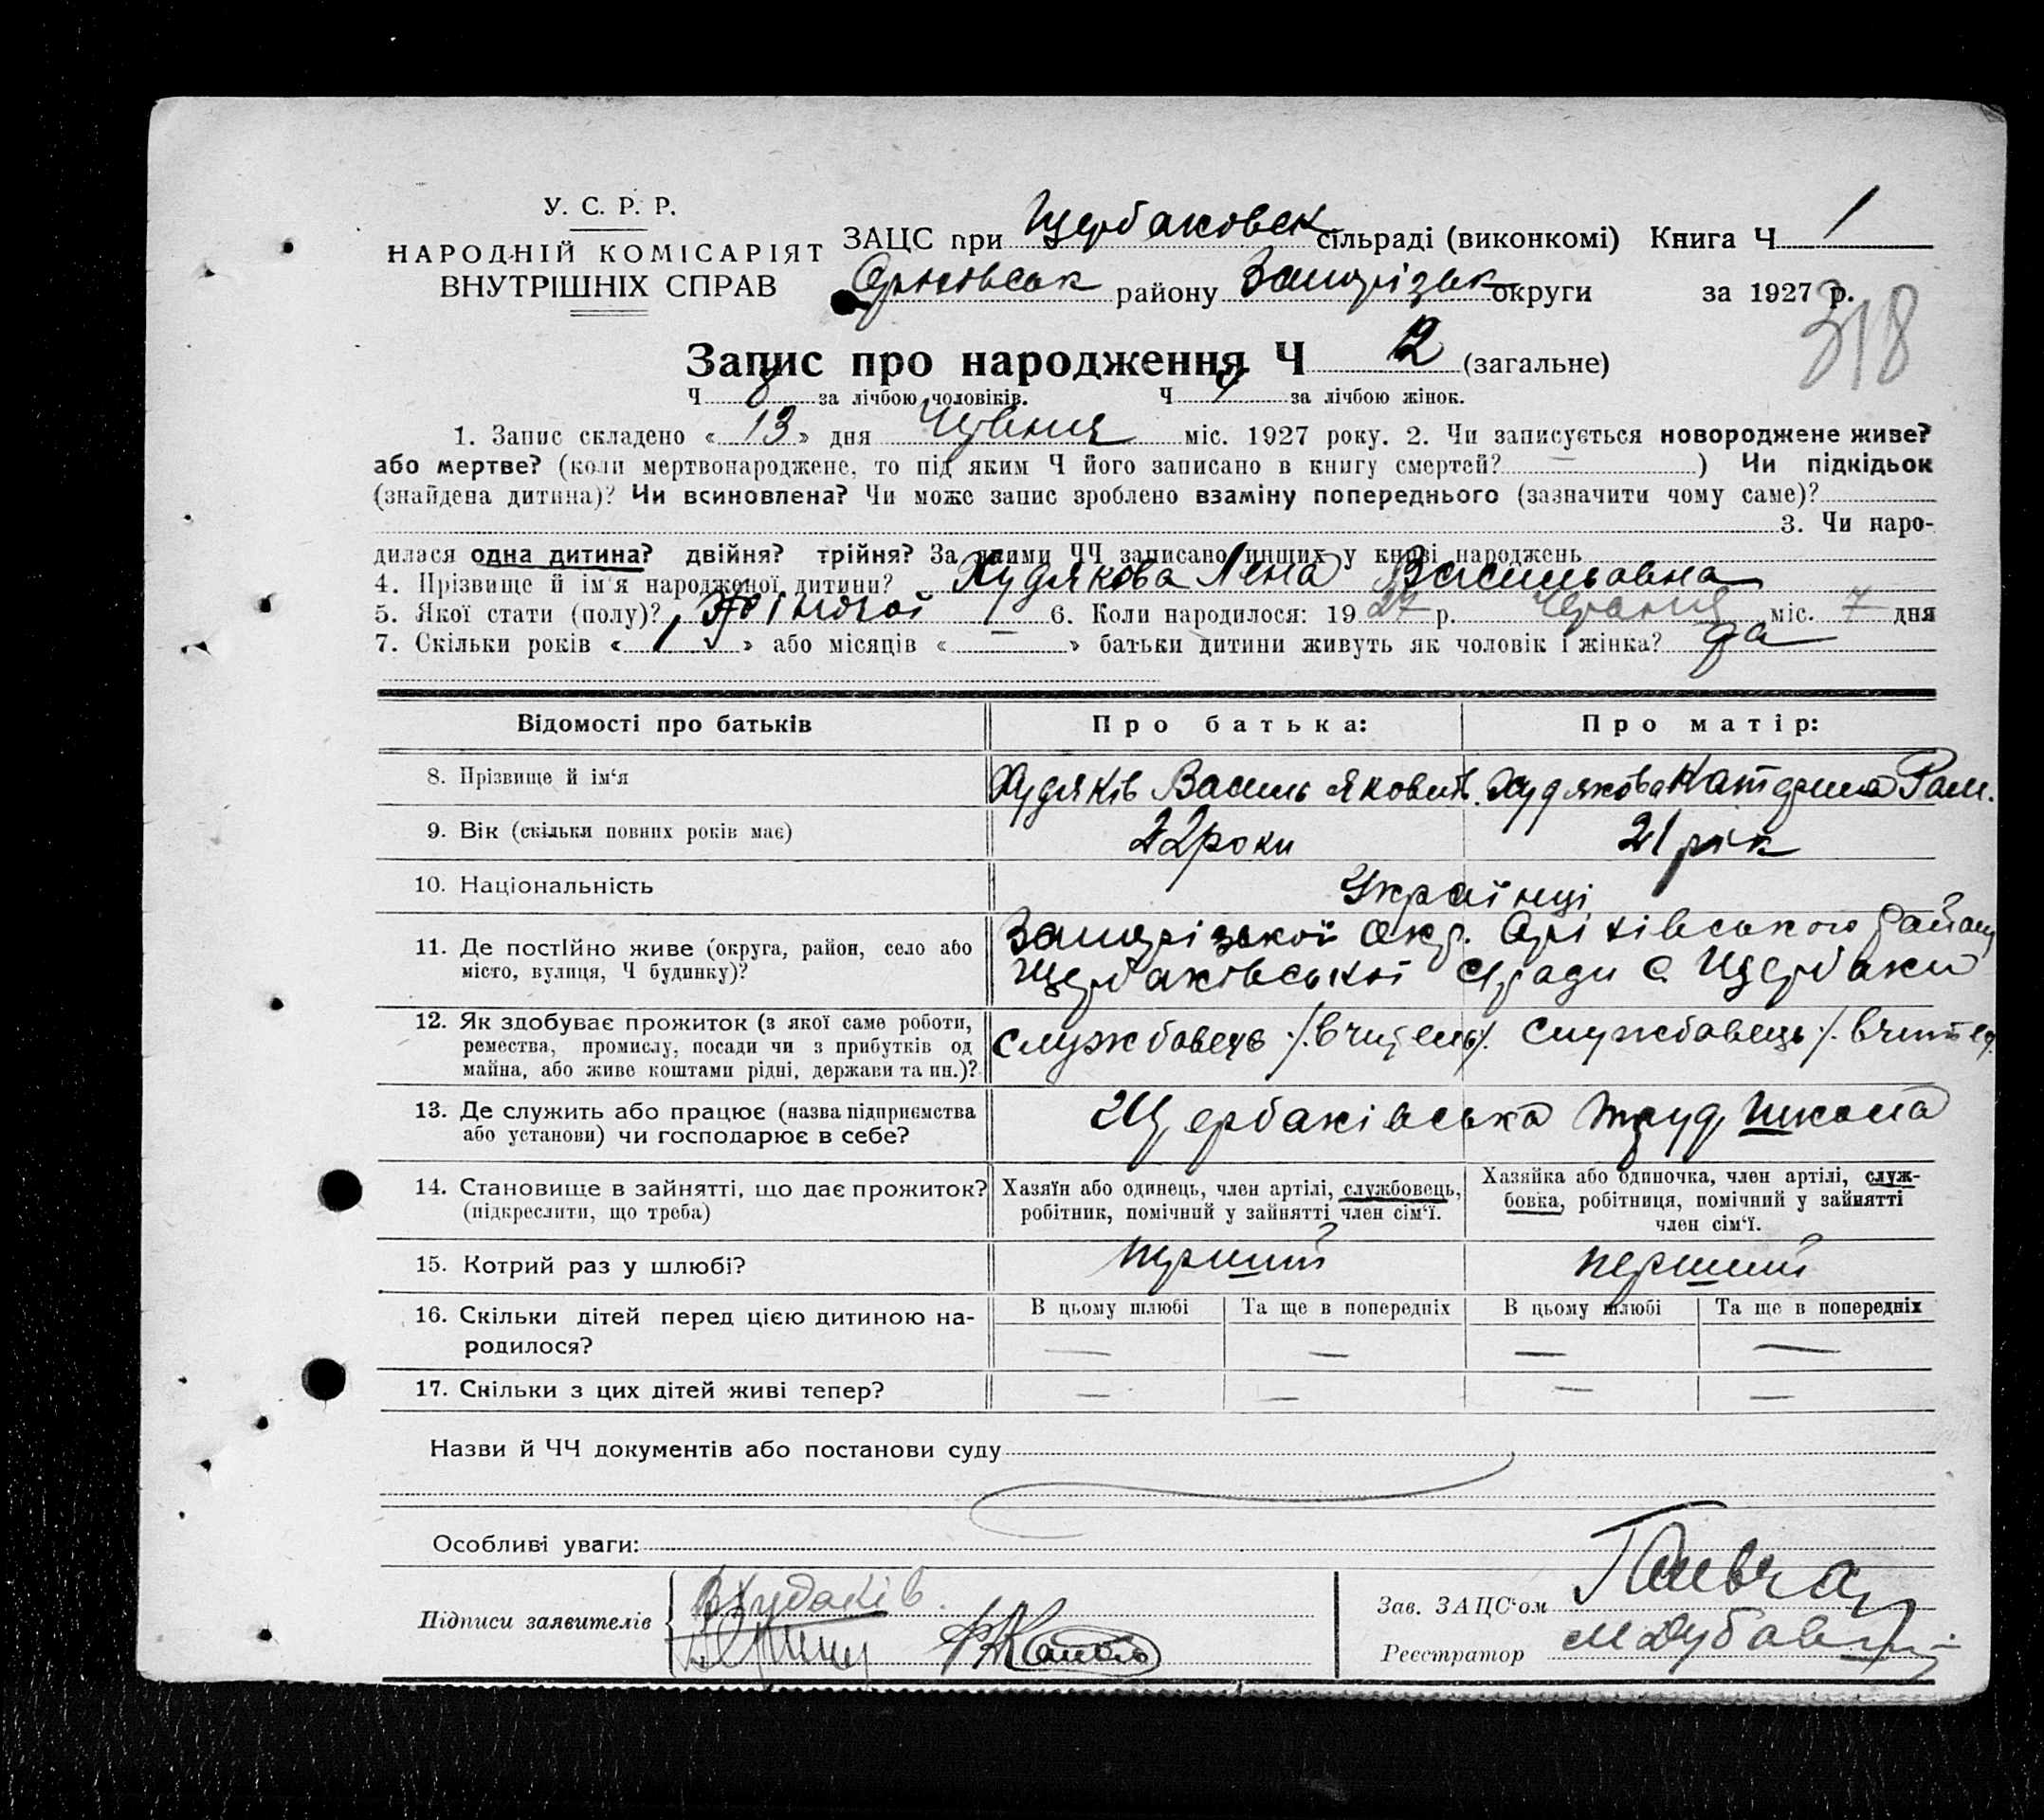 У. С. Р. Р.
НАРОДНІЙ КОМІСАРІЯТ
ВНУТРІШНІХ СПРАВ
ЗАЦС при Щербаковск сільраді (виконкомі) Книга Ч 1
району Запорізьк округи за 1927 р.
318
Запис про народження Ч 12 (загальне)
Ч 8 за лічбою чоловіків. Ч 4 за лічбою жінок.
1. Запис складено « 13 » дня Червня міс. 1927 року. 2. Чи записується новороджене живе?
або мертве? (коли мертвонароджене, то під яким Ч його записано в книгу смертей? — ) Чи підкідьок
(знайдена дитина)? Чи всиновлена? Чи може запис зроблено взаміну попереднього (зазначити чому саме)?
3. Чи наро-
дилася одна дитина? двійня? трійня? За якими ЧЧ записано инших у книзі народжень
4. Прізвище й ім'я народженої дитини? Худякова Лена Васильовна
5. Якої стати (полу)? Жіночої 6. Коли народилося: 19 27 р. Червня міс. 7 дня
7. Скільки років « 1 » або місяців « — » батьки дитини живуть як чоловік і жінка? да
Відомості про батьків Про батька: Про матір:
8. Прізвище й ім'я Худяків Василь Якович. Худякова Катерина Пам.
9. Вік (скільки повних років має) 22 роки 21 рік
10. Національність Українці
11. Де постійно живе (округа, район, село або Запорізької окр. Оріхівського району
місто, вулиця, Ч будинку)? Щербаківської с/ради с. Щербаки
12. Як здобуває прожиток (з якої саме роботи,
ремества, промислу, посади чи з прибутків од службовець /.вчитель/. службовець /.вчител.
майна, або живе коштами рідні, держави та ин.)?
13. Де служить або працює (назва підприємства Щербаківська труд школа
або установи) чи господарює в себе?
14. Становище в зайнятті, що дає прожиток?
(підкреслити, що треба)
Хазяїн або одинець, член артілі, службовець,
робітник, помічний у зайнятті член сім'ї.
Хазяйка або одиночка, член артілі, служ-
бовка, робітниця, помічний у зайнятті
член сім'ї.
15. Котрий раз у шлюбі? перший перший
16. Скільки дітей перед цією дитиною на-
родилося?
В цьому шлюбі Та ще в попередніх В цьому шлюбі Та ще в попередніх
— — — —
17. Скільки з цих дітей живі тепер? — — — —
Назви й ЧЧ документів або постанови суду
Особливі уваги:
Підписи заявителів
В Худяків.
Зав. ЗАЦС'ом
Реєстратор